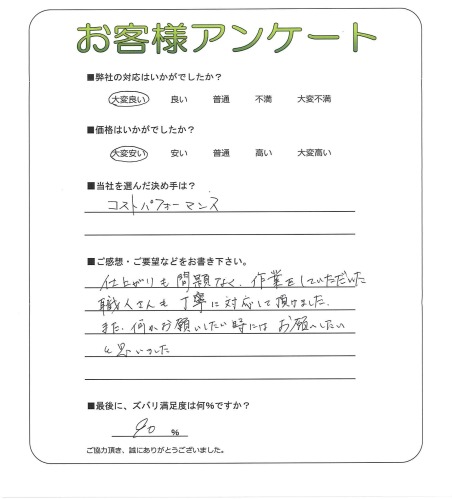 お客様アンケート
■弊社の対応はいかがでしたか？
大変良い 良い 普通 不満 大変不満
■価格はいかがでしたか？
大変安い 安い 普通 高い 大変高い
■当社を選んだ決め手は？
コストパフォーマンス
■ご感想・ご要望などをお書き下さい。
仕上がりも問題なく、作業をしていただいた
職人さんも丁寧に対応して頂けました。
また、何かお願いしたい時にはお願いしたい
と思いました
■最後に、ズバリ満足度は何％ですか？
90 %
ご協力頂き、誠にありがとうございました。